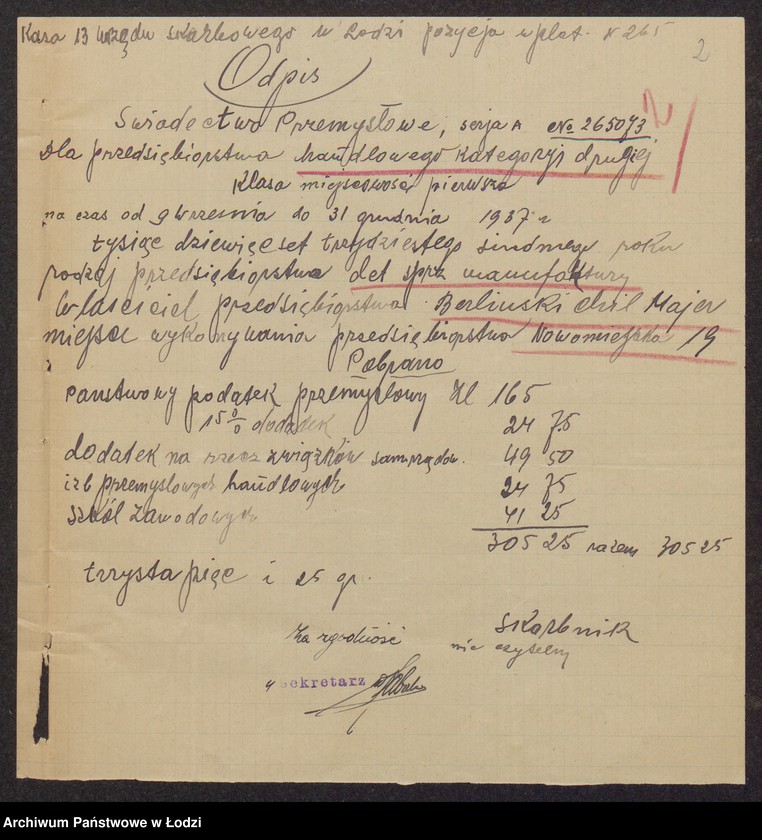 Kasa 13 urzędu skarbowego w Łodzi pozycja wpłat. N 265
2
Odpis
Świadectwo Przemysłowe, serja A No 265073
Dla przedsiębiorstwa handlowego kategorji drugiej
Klasa miejscowość pierwsza
na czas od 9 września do 31 grudnia 1937 r
tysiąc dziewięćset trzydziestego siudmego roku
rodzaj przedsiębiorstwa det sprz manufaktury
Właściciel przedsiębiorstwa Berliński Chil Majer
miejsce wykonywania przedsiębiorstwa Nowomiejska 19
Pobrano
państwowy podatek przemysłowy Zł 165
15 0/0 dodatek 24 75
dodatek na rzecz związków samorządow. 49 50
izb przemysłowych handlowych 24 75
szkół zawodowych 41 25
305 25 razem 305 25
trzysta pięć i 25 gr.
Za zgodność Skarbnik
nie czytelny
sekretarz
Archiwum Państwowe w Łodzi